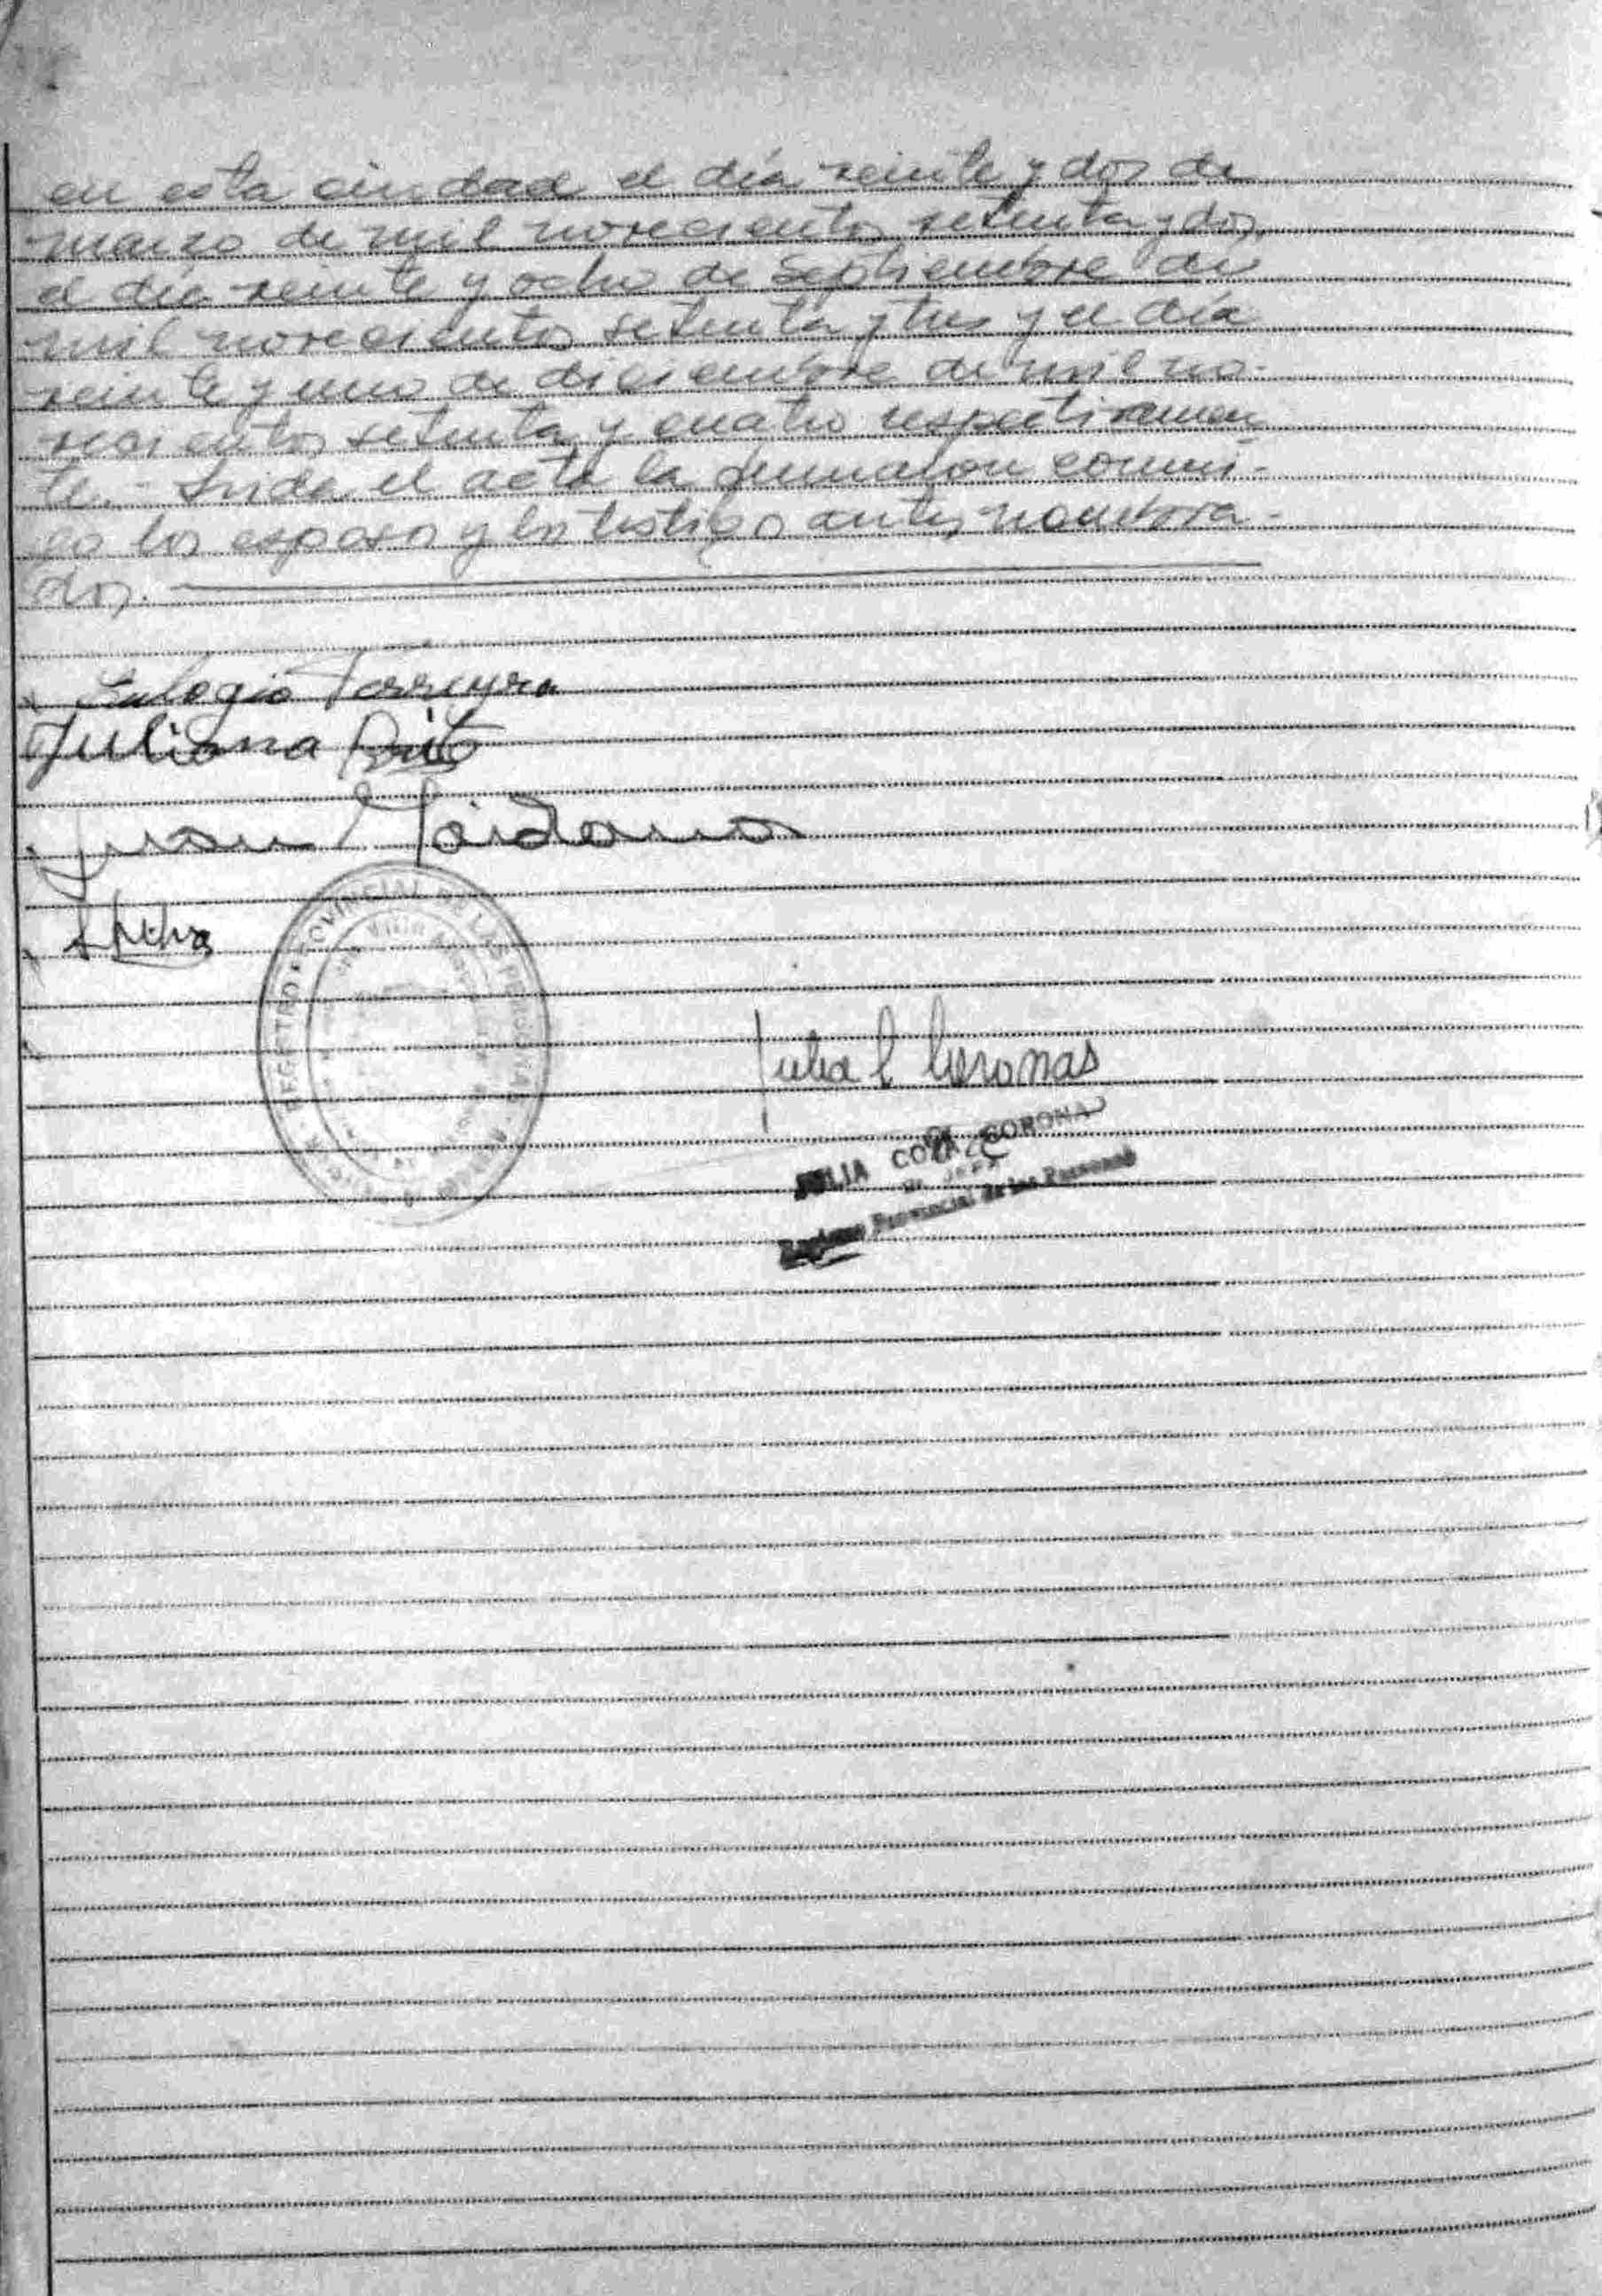 en esta ciudad el día veinte y dos de
marzo de mil novecientos setenta y dos,
el día veinte y ocho de Septiembre de
mil novecientos setenta y tres y el día
veinte y uno de diciembre de mil no-
vecientos setenta y cuatro respectivamen
te.- Leida el acta la firmaron conmi-
go los esposos y los testigos antes nombra-
dos.
Eulogio Ferreyra
Juliana Brito
Juan
REGISTRO PROVINCIAL DE LAS PERSONAS
Julia C Coronas
JULIA CORONA
JEFA
Registro Provincial de las Personas